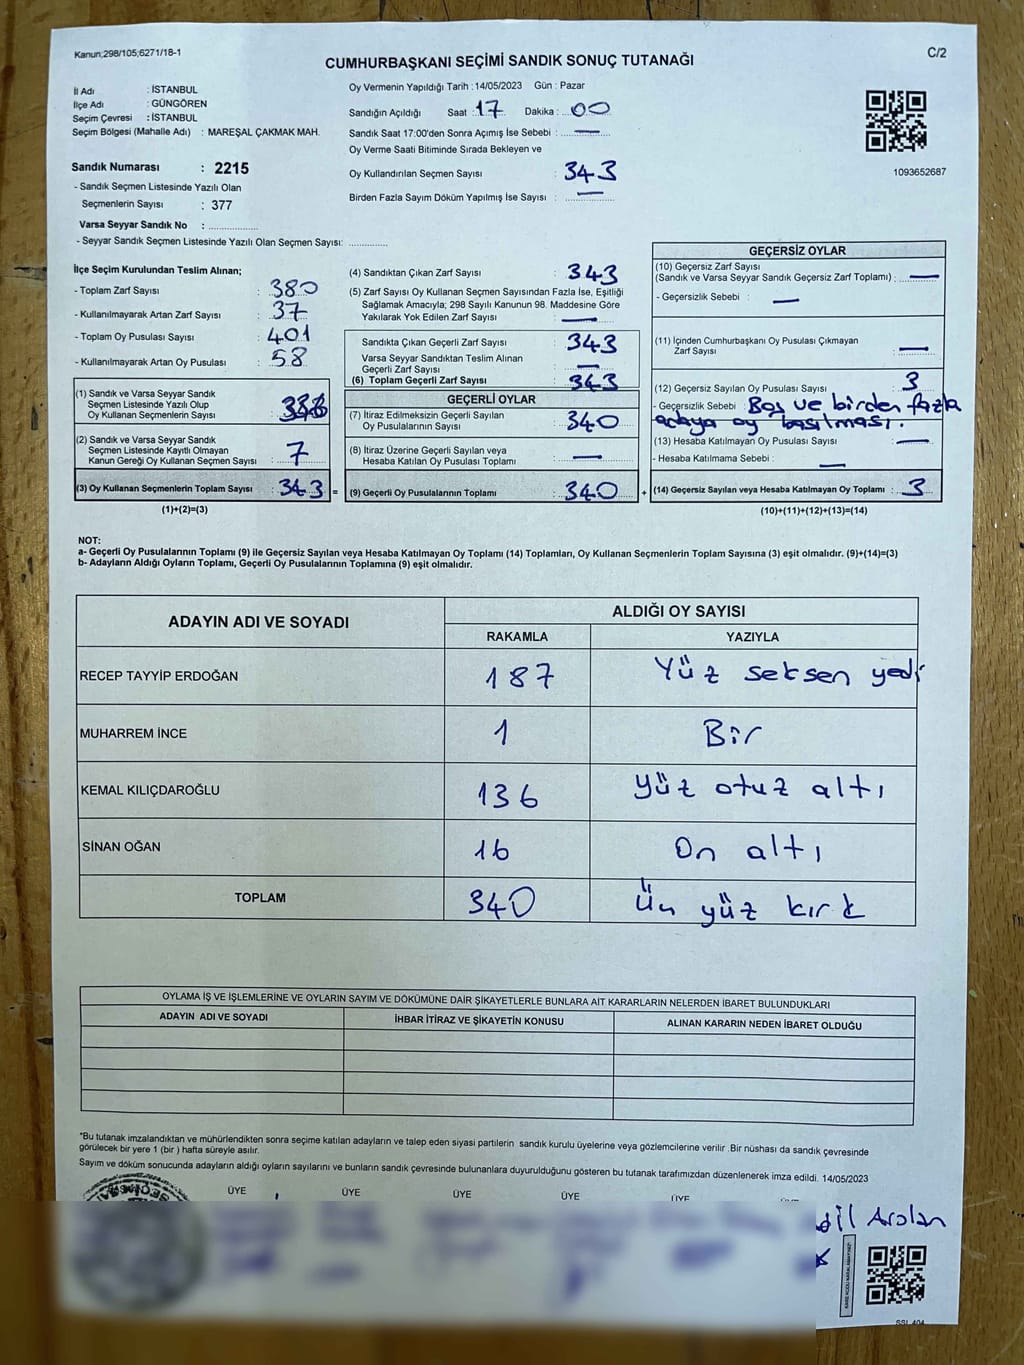 Kanun;298/105;6271/18-1
C/2
CUMHURBAŞKANI SEÇİMİ SANDIK SONUÇ TUTANAĞI
İl Adı : İSTANBUL
İlçe Adı : GÜNGÖREN
Seçim Çevresi : İSTANBUL
Seçim Bölgesi (Mahalle Adı) : MAREŞAL ÇAKMAK MAH.
Sandık Numarası : 2215
- Sandık Seçmen Listesinde Yazılı Olan
Seçmenlerin Sayısı : 377
Varsa Seyyar Sandık No : ................
- Seyyar Sandık Seçmen Listesinde Yazılı Olan Seçmen Sayısı: ............
Oy Vermenin Yapıldığı Tarih : 14/05/2023 Gün : Pazar
Sandığın Açıldığı Saat : 17 Dakika : 00
Sandık Saat 17:00'den Sonra Açımış İse Sebebi : —
Oy Verme Saati Bitiminde Sırada Bekleyen ve
Oy Kullandırılan Seçmen Sayısı : 343
Birden Fazla Sayım Döküm Yapılmış İse Sayısı : —
1093652687
İlçe Seçim Kurulundan Teslim Alınan;
- Toplam Zarf Sayısı : 380
- Kullanılmayarak Artan Zarf Sayısı : 37
- Toplam Oy Pusulası Sayısı : 401
- Kullanılmayarak Artan Oy Pusulası : 58
(1) Sandık ve Varsa Seyyar Sandık
Seçmen Listesinde Yazılı Olup
Oy Kullanan Seçmenlerin Sayısı :
(2) Sandık ve Varsa Seyyar Sandık
Seçmen Listesinde Kayıtlı Olmayan
Kanun Gereği Oy Kullanan Seçmen Sayısı : 7
(3) Oy Kullanan Seçmenlerin Toplam Sayısı : 343 =
(1)+(2)=(3)
(4) Sandıktan Çıkan Zarf Sayısı : 343
(5) Zarf Sayısı Oy Kullanan Seçmen Sayısından Fazla İse, Eşitliği
Sağlamak Amacıyla; 298 Sayılı Kanunun 98. Maddesine Göre
Yakılarak Yok Edilen Zarf Sayısı : —
Sandıkta Çıkan Geçerli Zarf Sayısı : 343
Varsa Seyyar Sandıktan Teslim Alınan
Geçerli Zarf Sayısı : —
(6) Toplam Geçerli Zarf Sayısı : 343
GEÇERLİ OYLAR
(7) İtiraz Edilmeksizin Geçerli Sayılan
Oy Pusulalarının Sayısı : 340
(8) İtiraz Üzerine Geçerli Sayılan veya
Hesaba Katılan Oy Pusulası Toplamı : —
(9) Geçerli Oy Pusulalarının Toplamı : 340 +
GEÇERSİZ OYLAR
(10) Geçersiz Zarf Sayısı
(Sandık ve Varsa Seyyar Sandık Geçersiz Zarf Toplamı) : —
- Geçersizlik Sebebi : —
(11) İçinden Cumhurbaşkanı Oy Pusulası Çıkmayan
Zarf Sayısı : —
(12) Geçersiz Sayılan Oy Pusulası Sayısı : 3
- Geçersizlik Sebebi : Boş ve birden fazla
adaya oy basılması.
(13) Hesaba Katılmayan Oy Pusulası Sayısı : —
- Hesaba Katılmama Sebebi : —
(14) Geçersiz Sayılan veya Hesaba Katılmayan Oy Toplamı : 3
(10)+(11)+(12)+(13)=(14)
NOT:
a- Geçerli Oy Pusulalarının Toplamı (9) ile Geçersiz Sayılan veya Hesaba Katılmayan Oy Toplamı (14) Toplamları, Oy Kullanan Seçmenlerin Toplam Sayısına (3) eşit olmalıdır. (9)+(14)=(3)
b- Adayların Aldığı Oyların Toplamı, Geçerli Oy Pusulalarının Toplamına (9) eşit olmalıdır.
ADAYIN ADI VE SOYADI ALDIĞI OY SAYISI
RAKAMLA YAZIYLA
RECEP TAYYİP ERDOĞAN 187 Yüz seksen yedi
MUHARREM İNCE 1 Bir
KEMAL KILIÇDAROĞLU 136 Yüz otuz altı
SİNAN OĞAN 16 On altı
TOPLAM 340 Üç yüz kırk
OYLAMA İŞ VE İŞLEMLERİNE VE OYLARIN SAYIM VE DÖKÜMÜNE DAİR ŞİKAYETLERLE BUNLARA AİT KARARLARIN NELERDEN İBARET BULUNDUKLARI
ADAYIN ADI VE SOYADI İHBAR İTİRAZ VE ŞİKAYETİN KONUSU ALINAN KARARIN NEDEN İBARET OLDUĞU
*Bu tutanak imzalandıktan ve mühürlendikten sonra seçime katılan adayların ve talep eden siyasi partilerin sandık kurulu üyelerine veya gözlemcilerine verilir .Bir nüshası da sandık çevresinde
görülecek bir yere 1 (bir ) hafta süreyle asılır.
Sayım ve döküm sonucunda adayların aldığı oyların sayılarını ve bunların sandık çevresinde bulunanlara duyurulduğunu gösteren bu tutanak tarafımızdan düzenlenerek imza edildi. 14/05/2023
ÜYE ÜYE ÜYE ÜYE ÜYE
Arslan